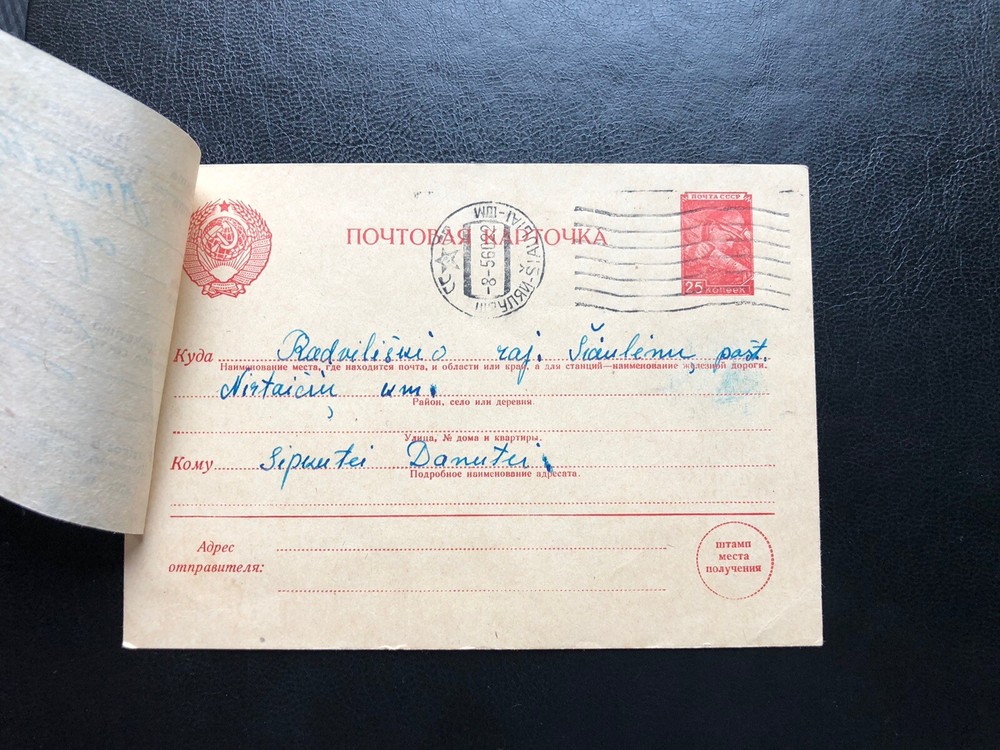 ПОЧТА СССР
ПОЧТОВАЯ КАРТОЧКА
ШЯУЛЯЙ-ŠIAULIAI-1ВМ
-8-56
25 КОПЕЕК
Куда Radviliškio raj. Šiaulėnų pašt.
Наименование места, где находится почта, и области или края, а для станций—наименование железной дороги.
km.
Район, село или деревня
Улица, № дома и квартиры.
Кому Sipkutei Danutei
Подробное наименование адресата.
Адрес
отправителя:
штамп
места
получения